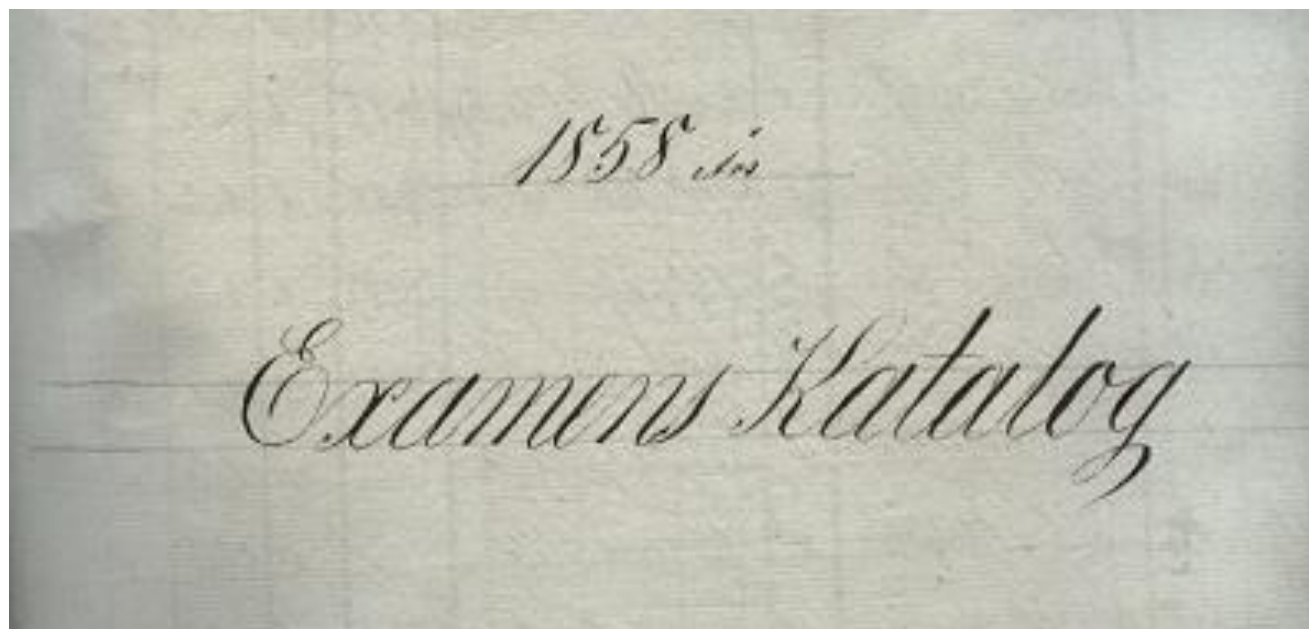 1858 års
Examens Katalog